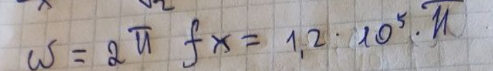 ω = 2π fx = 1,2 · 10⁵ · π